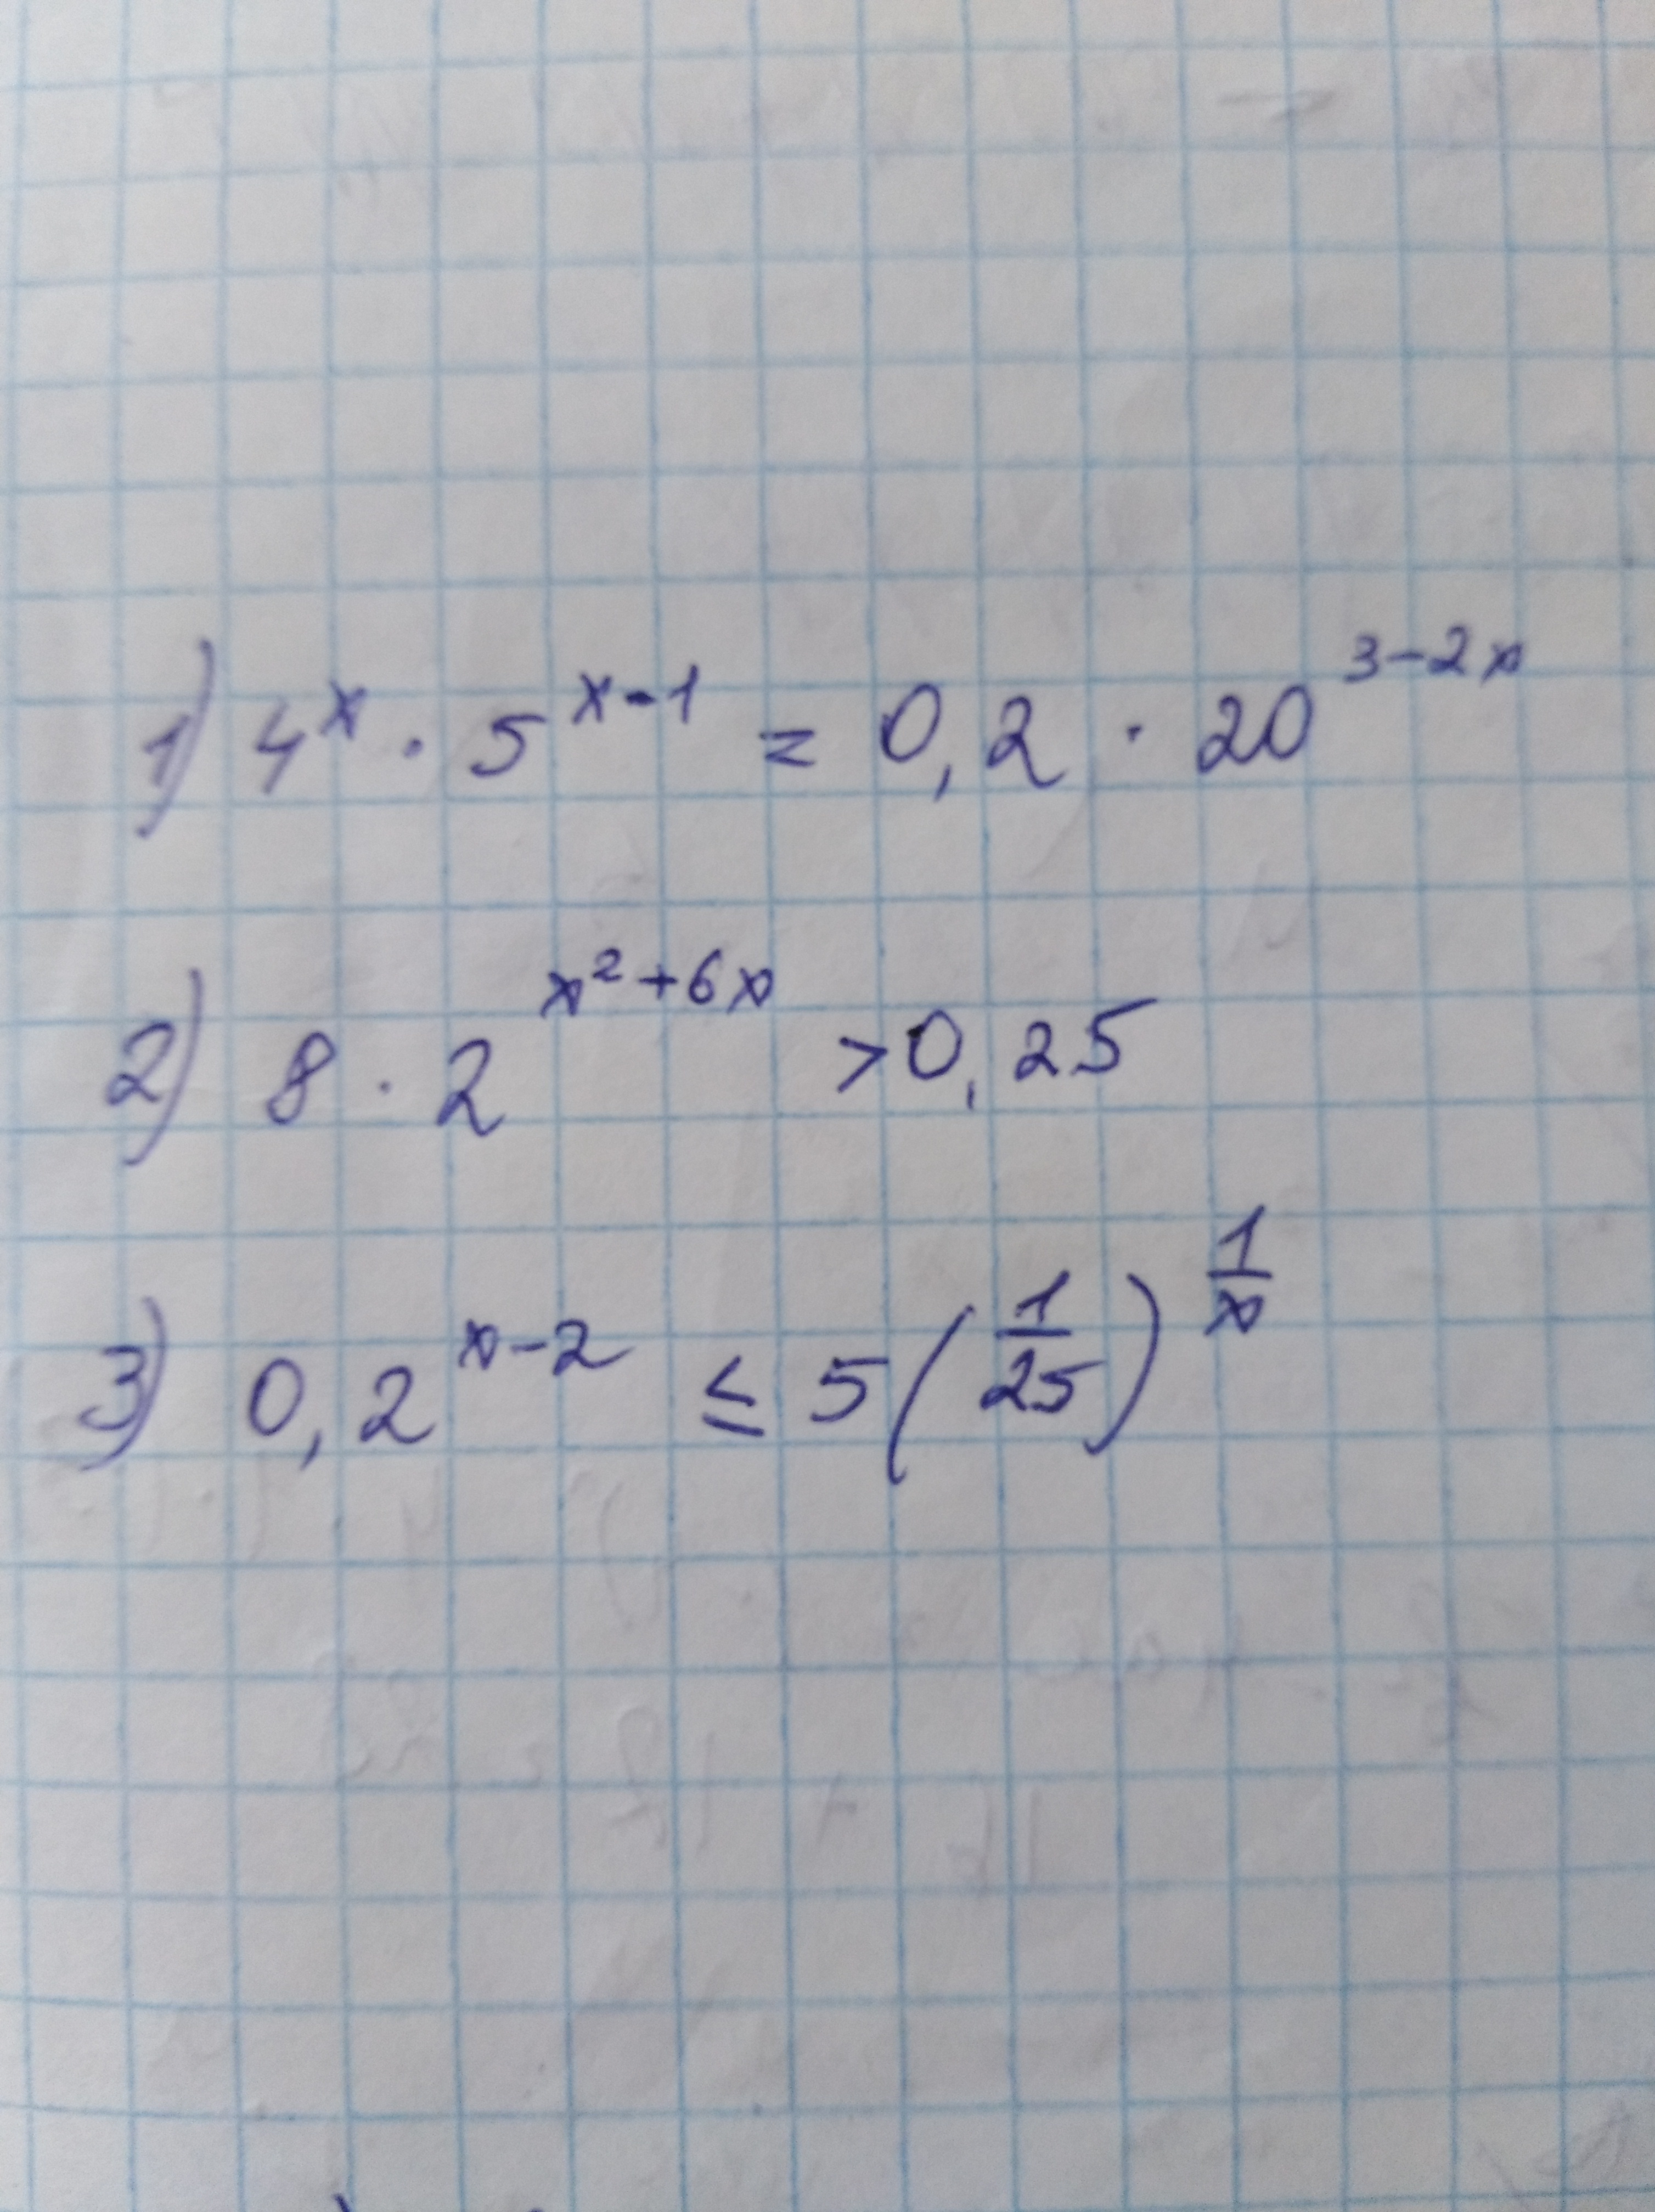 1) 4^x · 5^(x-1) = 0,2 · 20^(3-2x)
2) 8 · 2^(x²+6x) > 0,25
3) 0,2^(x-2) ≤ 5(1/25)^(1/x)